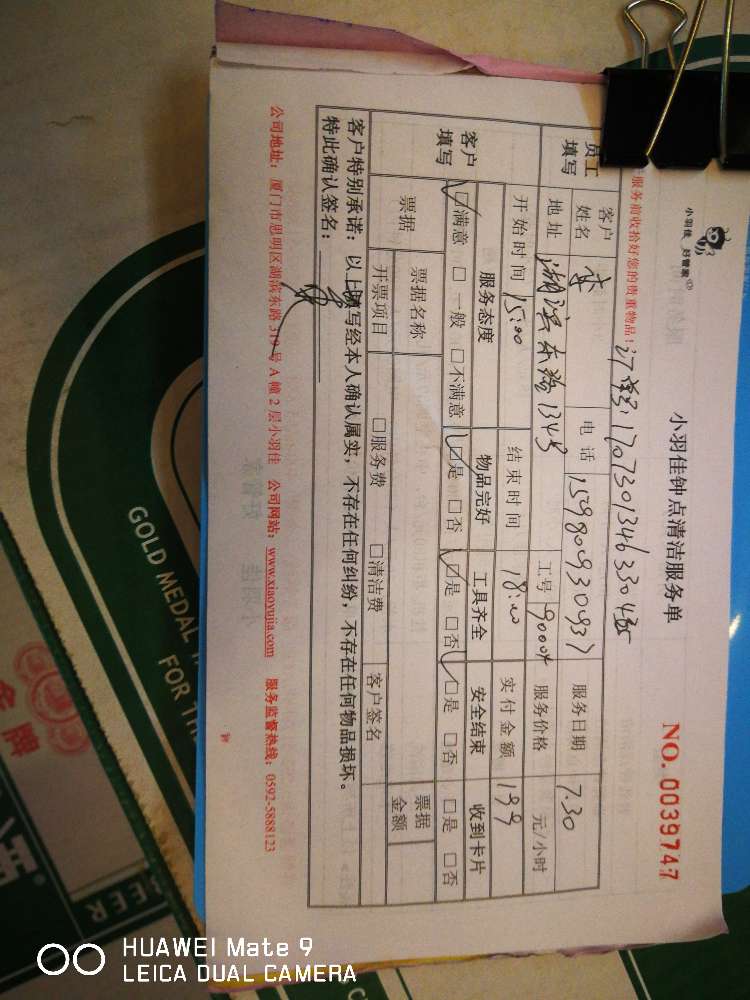 小羽佳 好管家
小羽佳钟点清洁服务单
NO. 0039747
服务前收拾好您的贵重物品!
订单号:170730134633043
员工填写 客户姓名 李 电话 15980930937 服务日期 7.30
地址 湖滨东路134号 工号 90004 服务价格 元/小时
开始时间 15:00 结束时间 18:00 实付金额 199
客户填写 服务态度 物品完好 工具齐全 安全结束 收到卡片
☑满意 □一般 □不满意 ☑是 □否 ☑是 □否 ☑是 □否 □是 □否
票据 票据名称 票据金额
开票项目 □服务费 □清洁费 客户签名
客户特别承诺:以上填写经本人确认属实,不存在任何纠纷,不存在任何物品损坏。
特此确认签名:
公司地址:厦门市思明区湖滨东路319号A幢2层小羽佳 公司网站:www.xiaoyujia.com 服务监督热线:0592-5888123
GOLD MEDAL
FOR TH
金牌
BEER
HUAWEI Mate 9
LEICA DUAL CAMERA